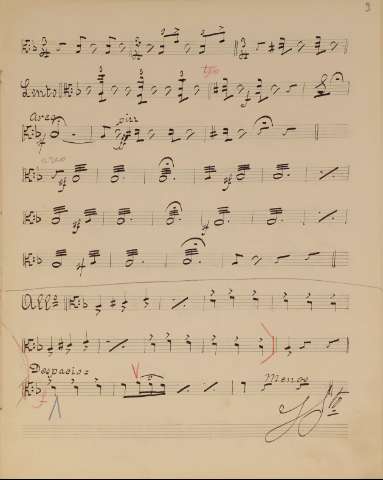 3
Lento
Arco
pizz
arco
All.º
Despacio:
Menos